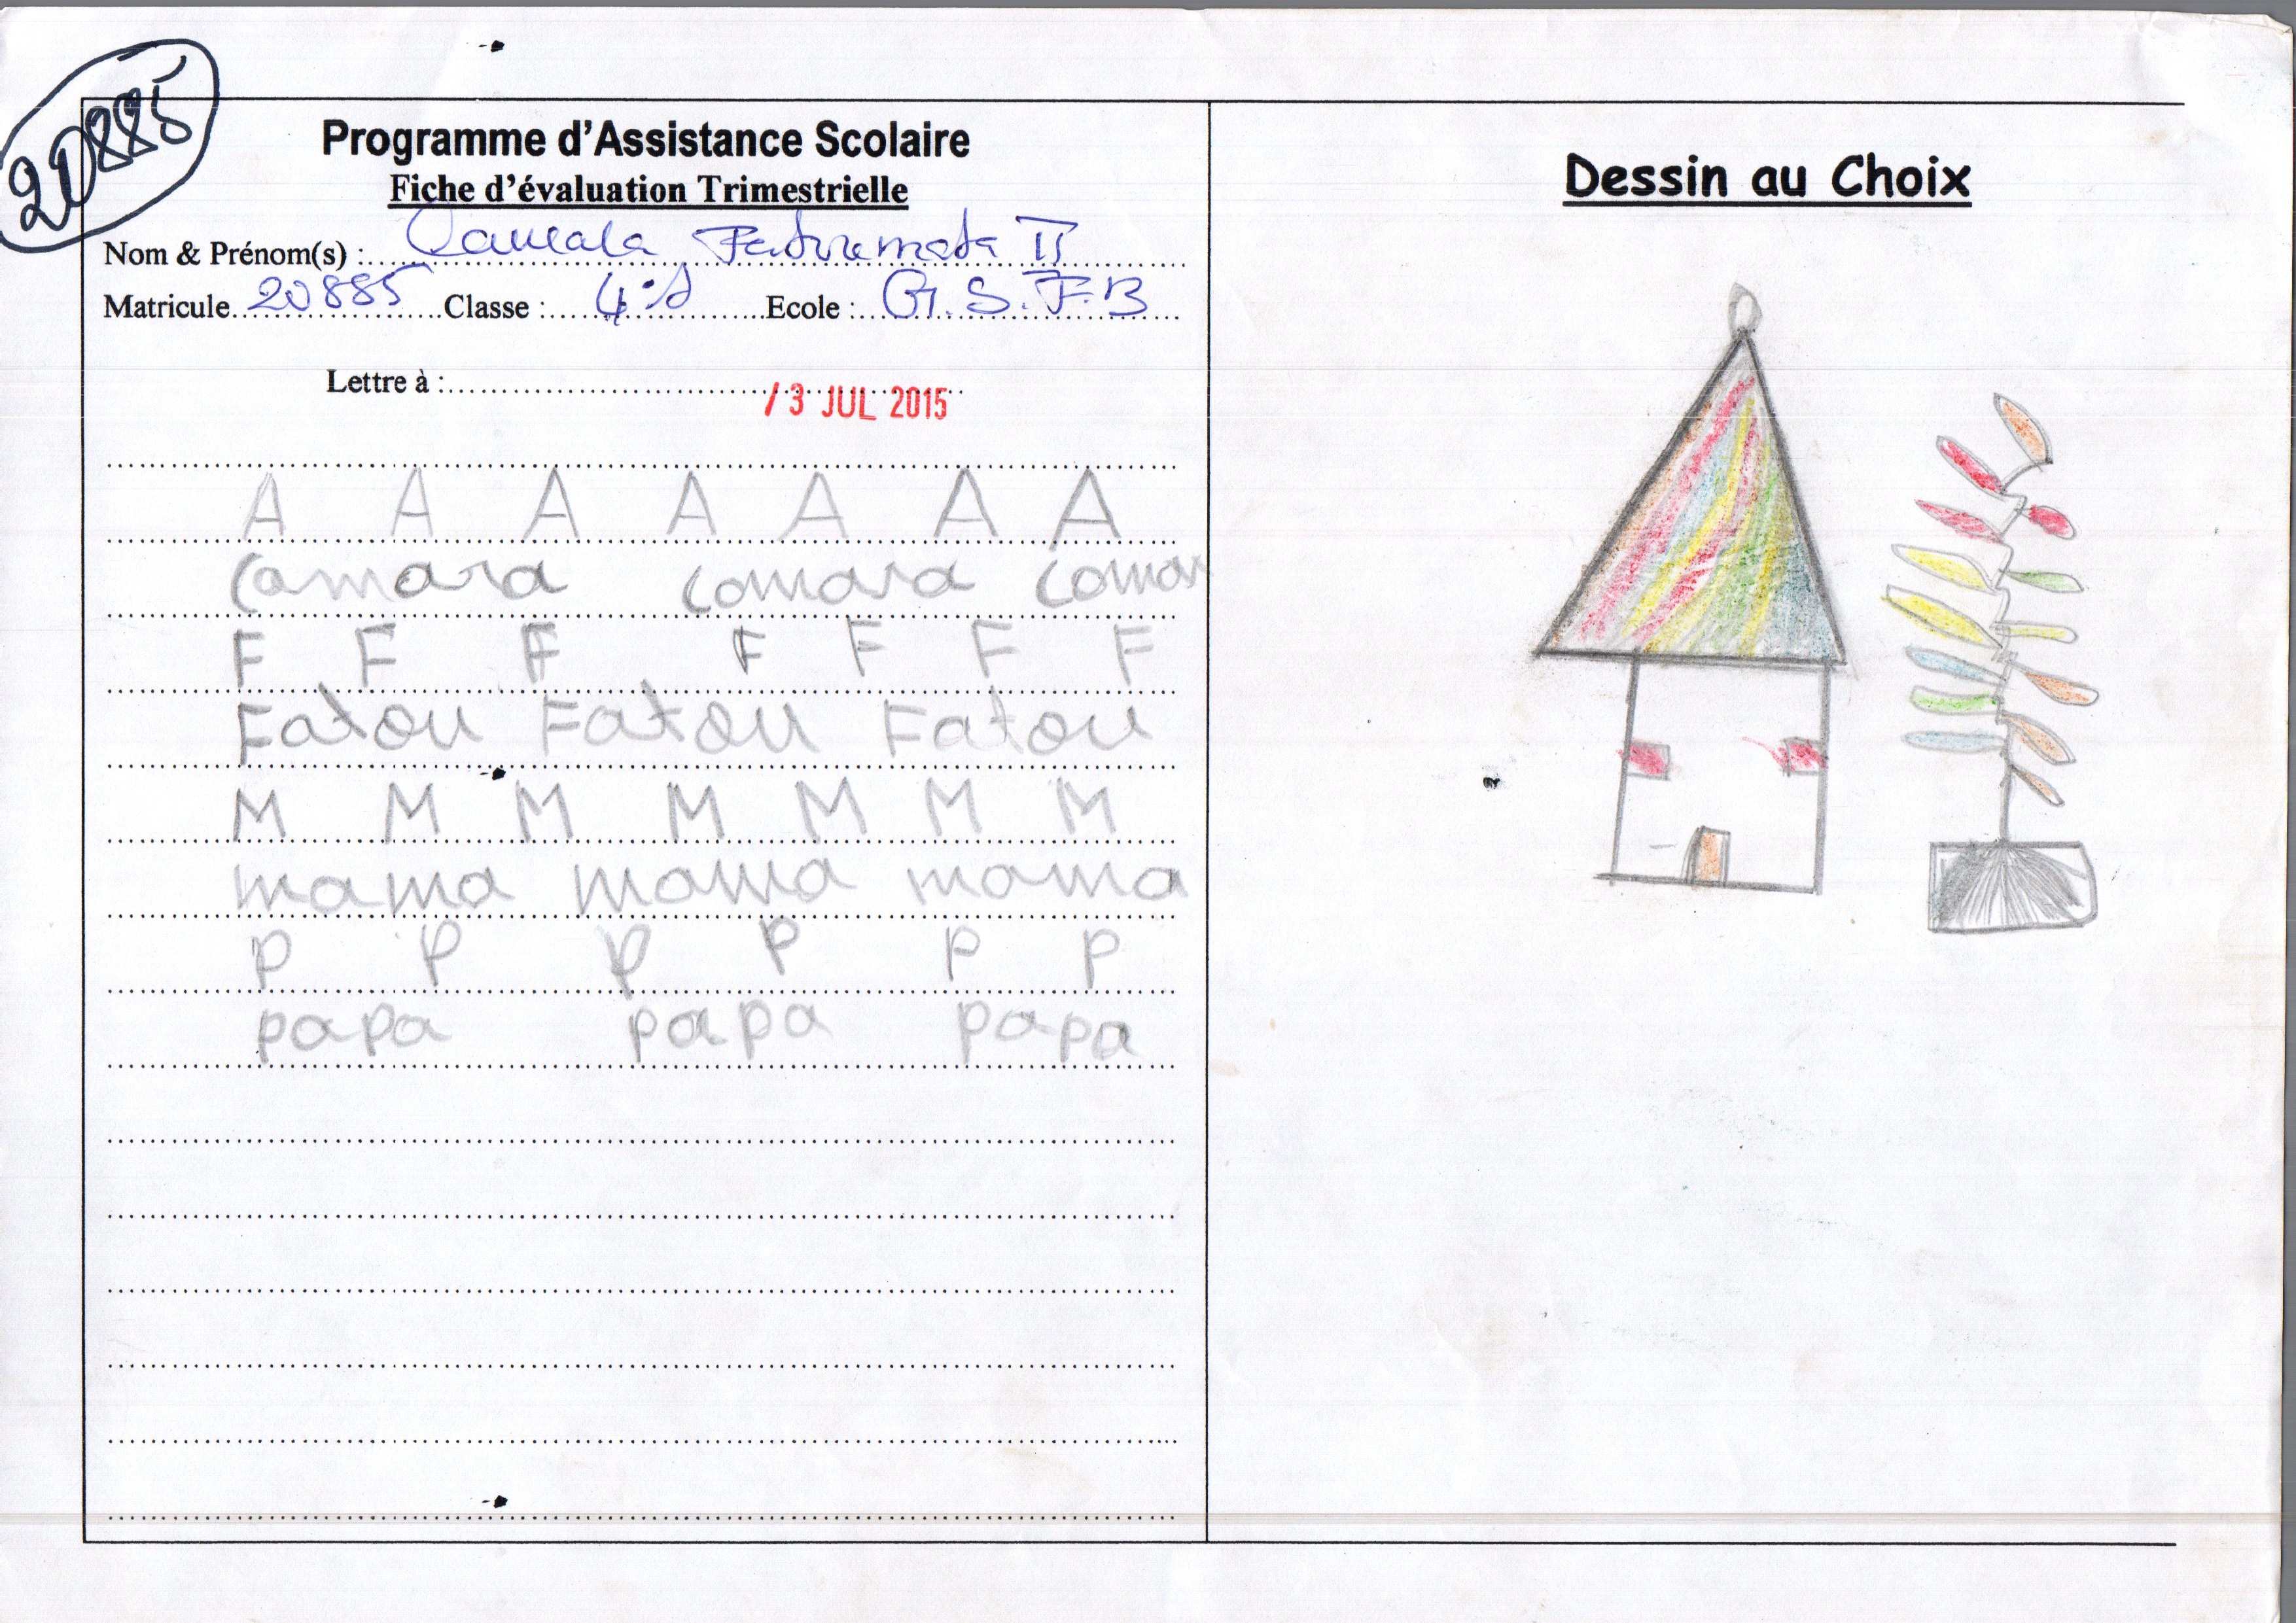 20885
Programme d'Assistance Scolaire
Fiche d'évaluation Trimestrielle
Nom & Prénom(s) : Camara Fatoumata II
Matricule 20885 Classe : 4e Ecole : G.S.F.B
Lettre à :
/ 3 JUL 2015
A A A A A A A
Camara Camara Camar
F F F F F F F
Fatou Fatou Fatou
M M M M M M M
mama mama mama
P P P P P P
papa papa papa
Dessin au Choix